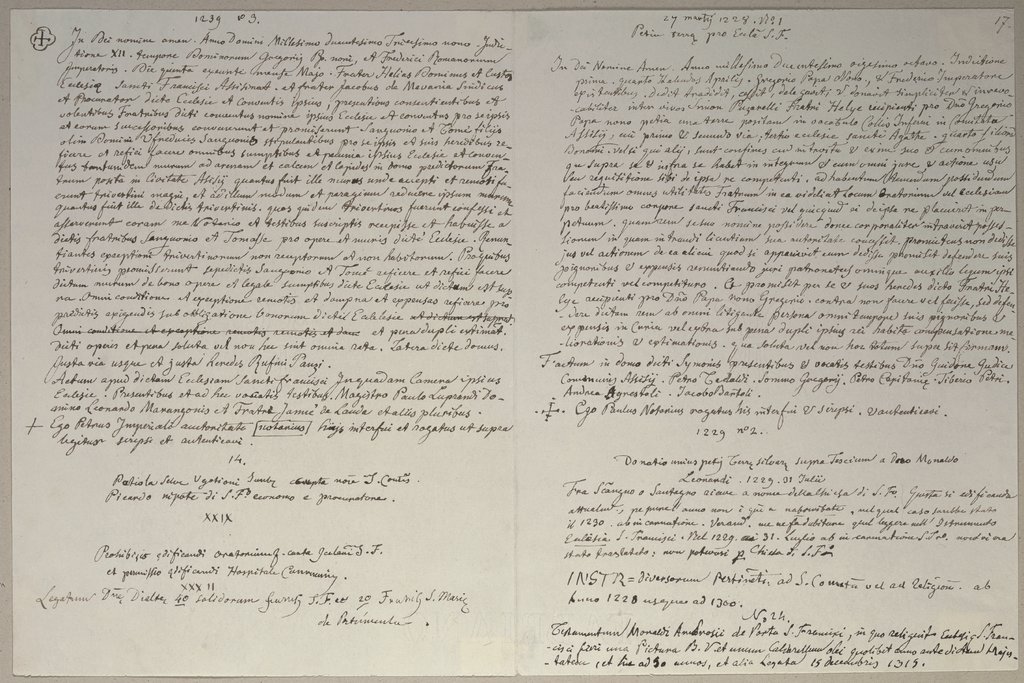 1239 nº 3.
In Dei nomine amen. Anno Domini Millesimo Ducentesimo Tricesimo nono. Indic-
tione XII. tempore Dominorum Gregorij Pp. noni, et Frederici Romanorum
Imperatoris. Die quinta exeunte mense Majo. Frater Helias Dominus et Custos
Ecclesie Sancti Francisci Assisinat. et frater Jacobus de Mevania Sindicus
et Procurator dicte Ecclesie et Conventus ipsius, presentibus consentientibus et
volentibus Fratribus dicti conventus nomine ipsius Ecclesie et conventus pro se ipsis
et eorum successoribus convenerunt et promiserunt Sanguonio et Tomi filijs
olim Domini Ufreducij Sanguonij stipulantibus pro se ipsis et suis heredibus re-
ficere et refici facere omnibus sumptibus et pecunia ipsius Ecclesie et conven-
tus tantumdem murum ad arenam et calcem et lapides in domo predictorum fra-
trum posita in Civitate Assisij quantus fuit ille murus unde accepti et remoti fu-
erunt trivertini magni, et ad illum modum et paragium reducere ipsum murum
quantus fuit ille de dictis trivertinis. quos quidem trivertinos fuerunt confessi et
asseverunt coram me Notario et testibus suscriptis recepisse et habuisse a
dictis fratribus Sanguonio et Tomasse pro opere et muris dicte Ecclesie. Renun-
tiantes exceptioni trivertinorum non receptorum et non habitorum. Pro quibus
trivertinis promiserunt sepedictis Sanguonio et Tome reficere et refici facere
dictum murum de bono opere et legale sumptibus dicte Ecclesie ut dictum est sup-
ra. Omni conditione et exceptione remotis et dampna et expensas reficere pro
predictis exigendis sub obligatione bonorum dicte Ecclesie ut dictum est supra.
Omni conditione et exceptione remotis et pena dupli extimat.
dicti operis et pena soluta vel non hec sint omnia rata. Latera dicte domus.
Justa via usque et justa heredes Rufini Panzi.
Actum apud dictam Ecclesiam Sancti Francisci In quadam Camera ipsius
Ecclesie. Presentibus et ad hec vocatis testibus. Magistro Paulo Luprandi Do-
mino Leonardo Marangonis et Fratre Jamie de Lauda et aliis pluribus.
+ Ego Petrus Imperiali auctoritate [notarius] his interfui et rogatus ut supra
legitur scripsi et autenticavi.
14.
Ratiola Selve Ugotioni
Picardo nipote di S. Fº economo e procuratore.
XXIX
Prohibitio edificandi oratorium S. F.
et permissio edificandi Hospitale
XXXII
Legatum Dne Dialte 40 solidorum S. F. et 20 S. Marie
de Portiuncula.
17
27 martij 1228. Nº 1
Petia terre pro Eccla S. F.
In Dei Nomine Amen. Anno millesimo ducentesimo vigesimo octavo. Indictione
prima. quarto kalendas Aprilis. Gregorio Papa Nono, & Frederico Imperatore
existentibus. Dedit tradidit, cessit, delegavit, & donavit simpliciter & irrevo-
cabiliter inter vivos Simon Puzarelli Fratri Helye recipienti pro Dno Gregorio
Papa nono petia una terre positam in vocabulo Collis Inferni in Comitatu
Assisij, cui primo & secundo via. tertio ecclesie Sancte Agathe. quarto filiorum
Bonomi. Vel si qui alij sunt confines cum introitu & exitu suo & cum omnibus
que supra se & infra se habet in integrum & cum omni jure & actione usu
seu requisitione sibi de ipsa re competenti. ad habendum tenendum possidendum
faciendum omnes utilitates Fratrum in ea videlicet locum Oratorium vel Ecclesiam
pro beatissimo corpore sancti Francisci vel quicquid ei de ipsa re placuerit in per-
petuum. quam rem se suo nomine possidere donec corporaliter intraverit posses-
sionem in quam intrandi licentiam sua auctoritate concessit. promittens non dedisse
jus vel actionem de ea alicui quod si apparuerit eum dedisse promisit defendere suis
pignoribus & expensis renuntiando juri patronatus omnique auxilio legum ipsi
competenti vel competituro. Et promisit per se & suos heredes dicto Fratri He-
lye recipienti pro Dno Papa nono Gregorio. contra non facere vel fecisse, sed defen-
dere dictam rem ab omni litigante persona omni tempore suis pignoribus &
expensis in Curia vel extra sub pena dupli ipsius rei habita compensatione me-
liorationis & extimationis. qua soluta vel non hoc totum semper sit firmum.
Factum in domo dicti Symonis presentibus & vocatis testibus Dno Guidone Judice
Communis Assisij. Petro Tebaldi. Sommo Gregorij. Petro Capitanie. Tiberio Petri.
Andrea Agrestoli. Jacobo Bartoli.
Ego Paulus Notarius rogatus his interfui & scripsi. & autenticavi.
1229 nº 2.
Donatio unius petij Terre silvate supra Fascium a Dno Monaldo
Leonardi. 1229. 31 Julii
Fra Sanguo o Santegno riceve a nome della chiesa di S. Fº Questa si edificanda
attualmt, seppure l'anno non è qui a nativitate, nel qual caso sarebbe stato
il 1230. ab incarnatione. me ne fa dubitare quel leggere nell' Istrumento
Ecclesia S. Francisci. Nel 1229. ai 31. Luglio ab incarnatione S. Fco. non vi era
stato traslatato: non potevasi p Chiesa d. S. Fº
INSTR = diversorum Pertinenti. ad S. Convtm vel ad Religion. ab
Anno 1228 usque ad 1300.
Nº 24.
Testamentum Monaldi Ambrosii de Porta S. Francisci, in quo reliquit Ecclesie S. Fran-
cisci fieri una Pictura B. V. et unum Calcarellum olei quolibet anno ante dictam Majes-
tatem, et hic ad 30 annos, et alia Legata 15 Decembris 1315.